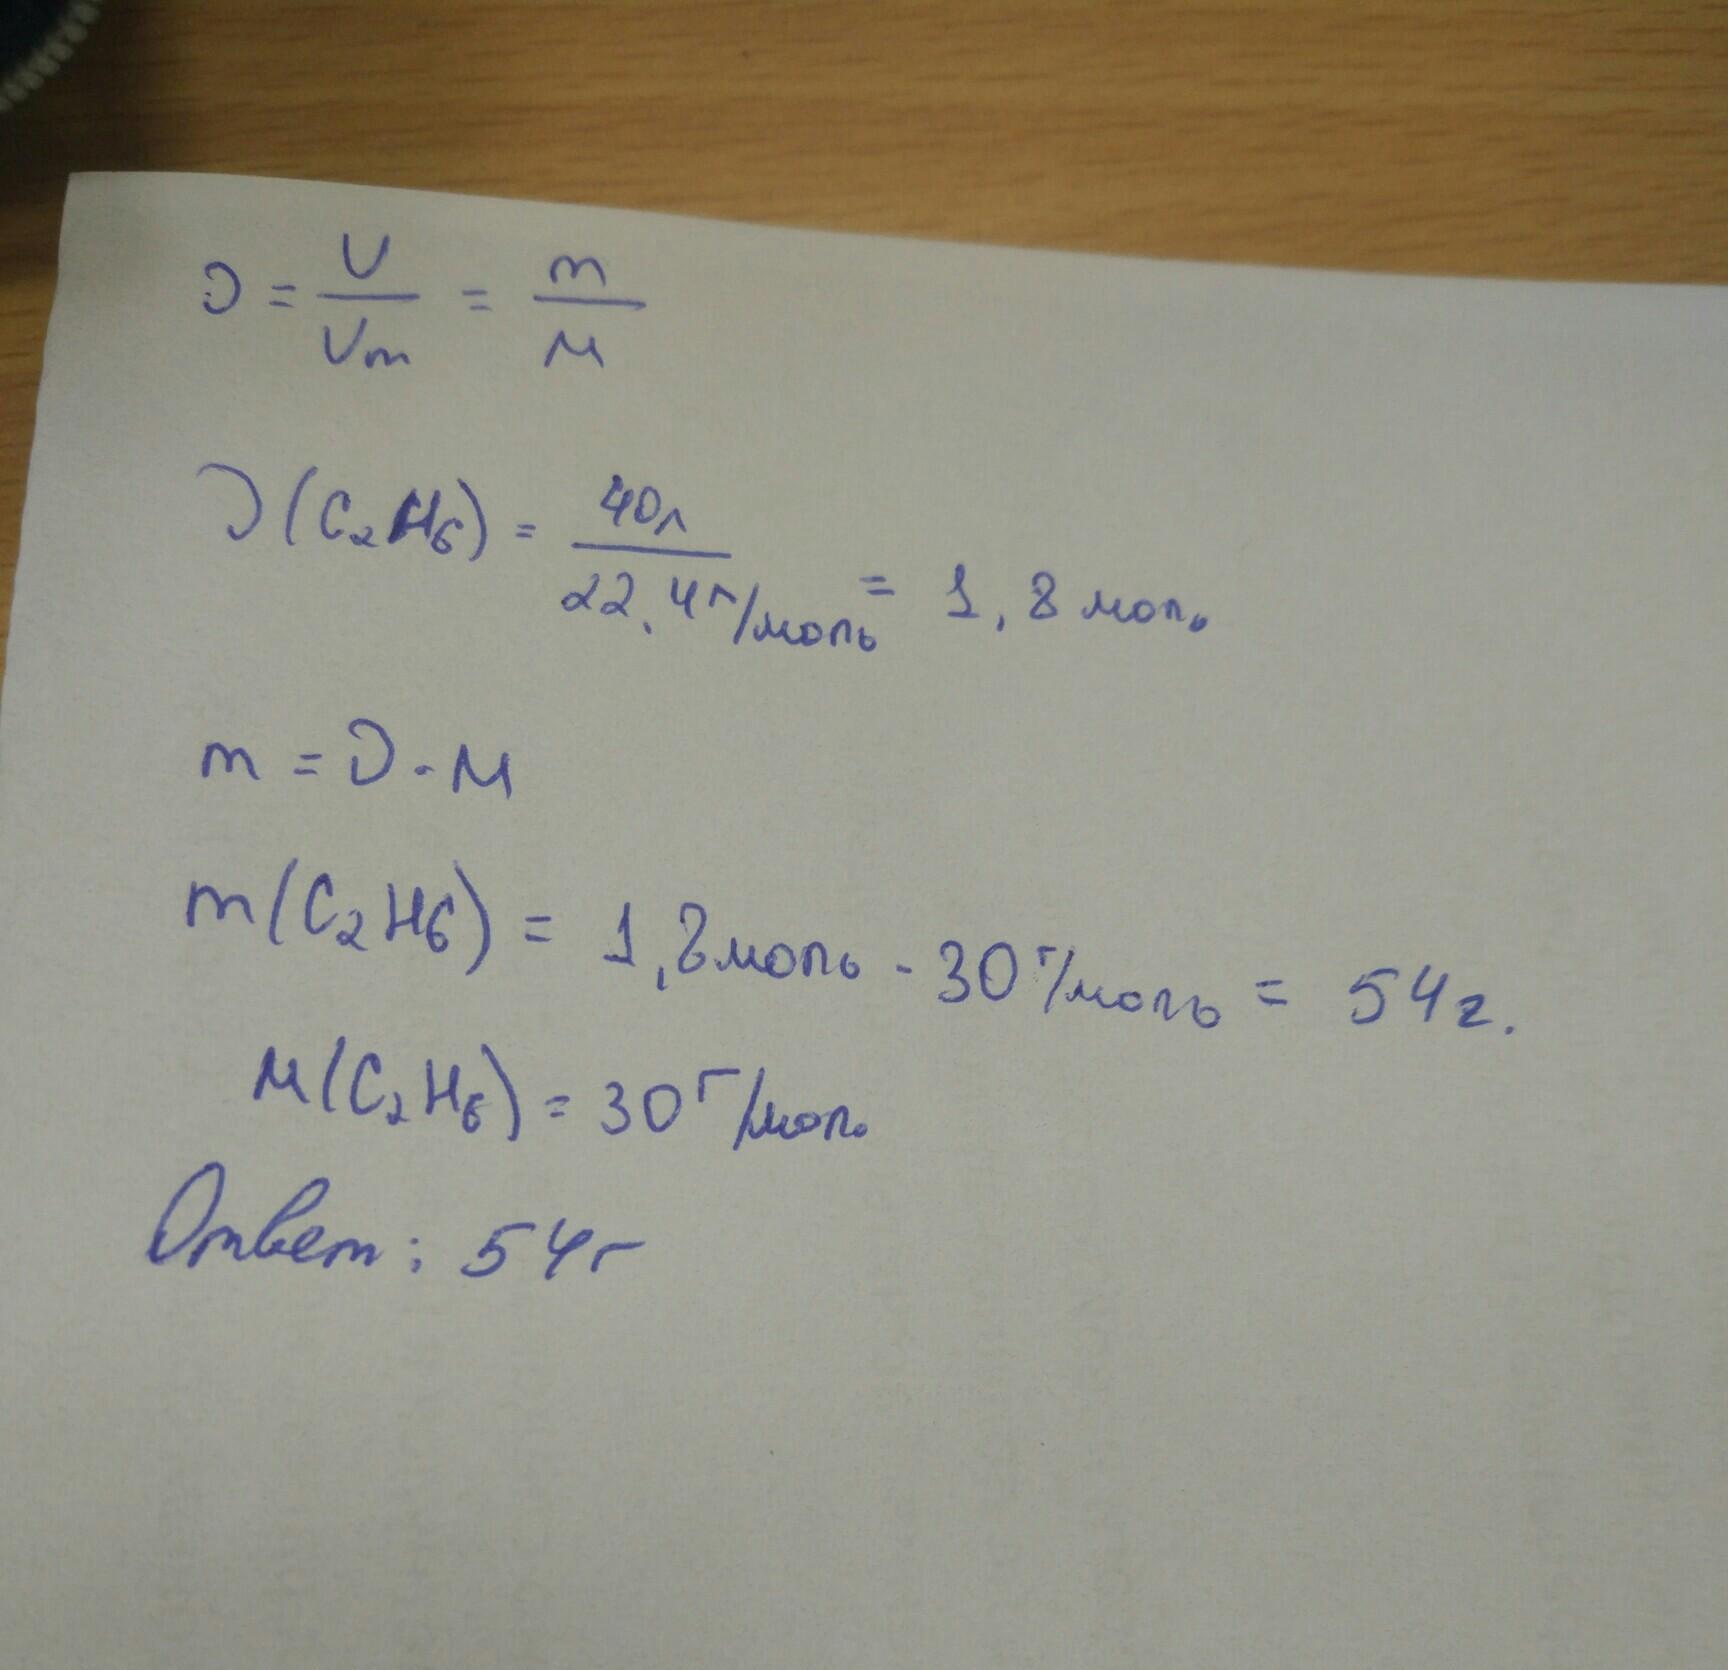 υ = V/Vm = m/M
υ(C₂H₆) = 40л/22,4г/моль = 1,8 моль
m = υ · M
m(C₂H₆) = 1,8 моль · 30 г/моль = 54 г.
M(C₂H₆) = 30 г/моль
Ответ: 54 г